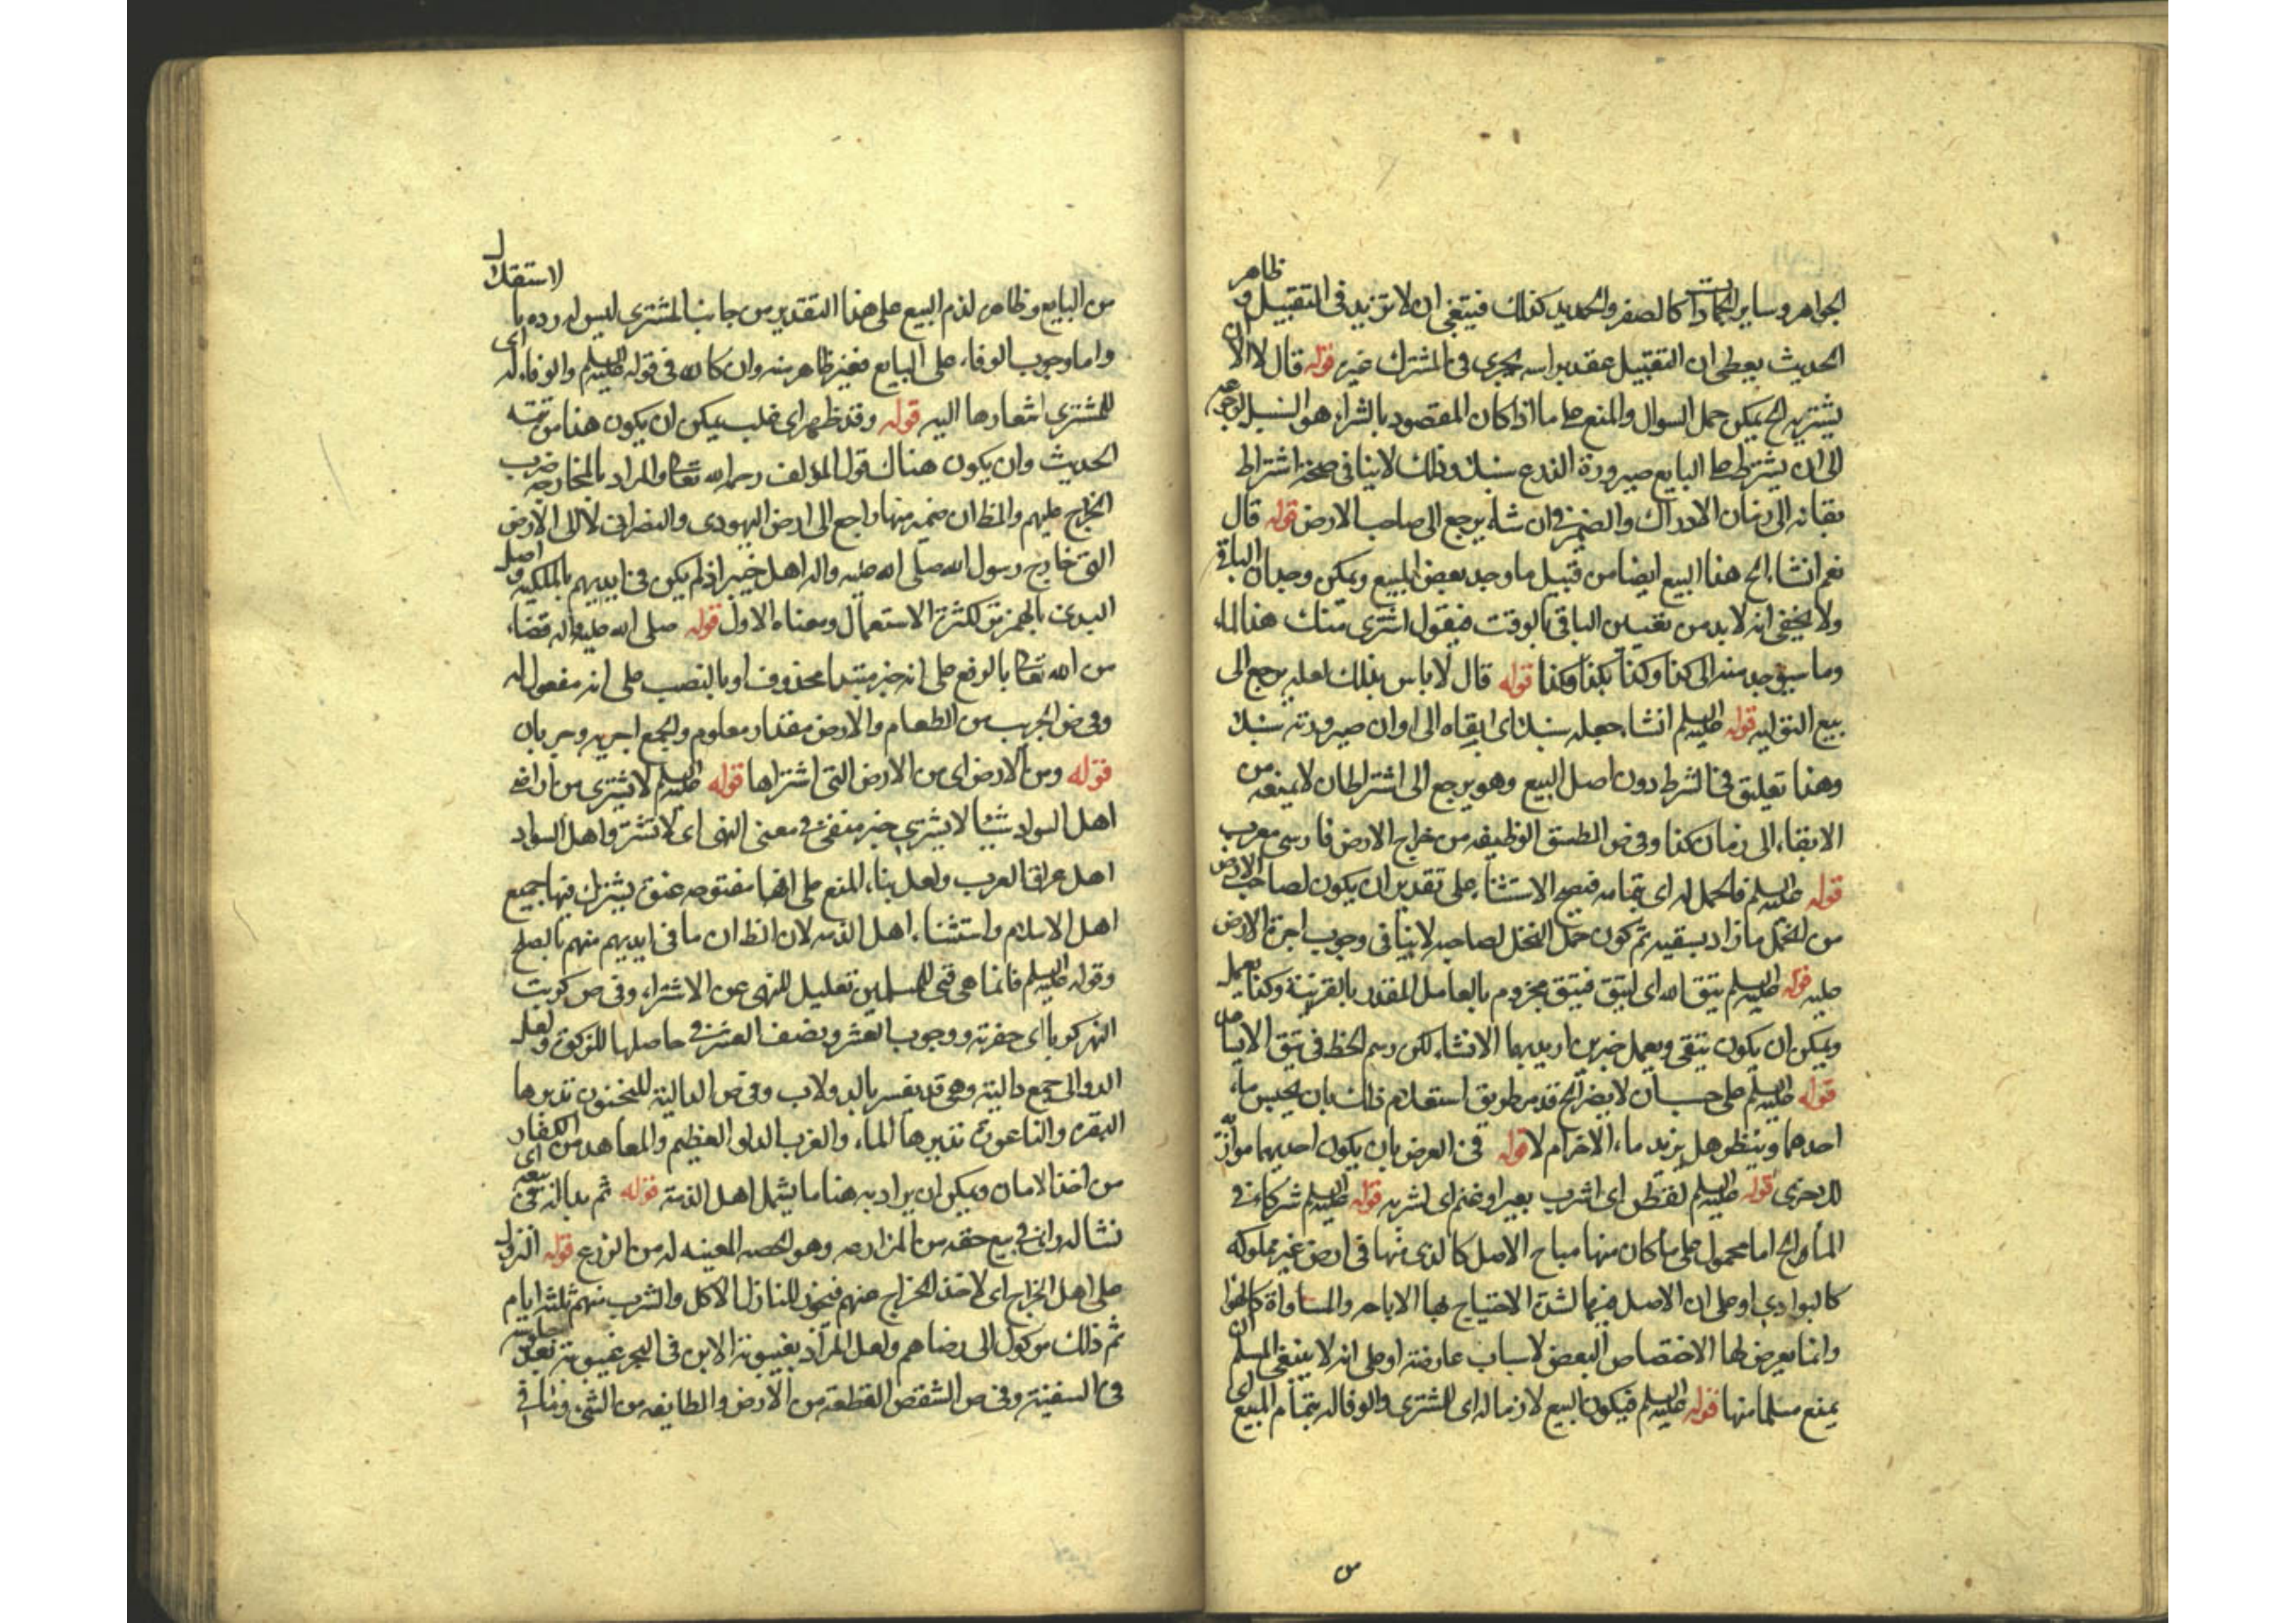 الجواهر وساير الجمادات كالصفر والحديد كذلك فينبغى ان لا تزيد فى التقبيل و ظاهر
الحديث يعطى ان التقبيل عقد براسه يجرى فى المشترك خير قوله قال لا الا ان
يشتريه الخ يمكن حمل السوال والمنع على ما اذا كان المقصود بالشراء هو السنبل
الى ان يشترط على البايع صيرورة الزرع سنبلا وذلك لا ينافى صحة اشتراط
بقائه الى زمان الادراك والضمير فى ان شاء يرجع الى صاحب الارض قوله قال
نعم انشاء الخ هذا البيع ايضا من قبيل ما وجد بعض المبيع ويمكن وجدان الباقى
ولا يخفى انه لا بد من تعيين الباقى بالوقت فيقول اشترى منك هذا الماء
وما سيوجد منه الى كذا وكذا بكذا وكذا قوله قال لا باس بذلك لعله يرجع الى
بيع التولية قوله عليه السلم انشاء جعله سنبلا اى ابقاه الى اوان صيرورته سنبلا
وهذا تعليق فى الشرط دون اصل البيع وهو يرجع الى اشتراط ان لا يمنعه من
الابقاء الى زمان كذا وفى ض الطسق الوظيفه من خراج الارض فارسى معرب
قوله عليه السلم فالحمل له اى بتمامه فيصح الاستثناء على تقدير ان يكون لصاحب الارض
من النخل ما زاد بسقيه ثم كون حمل النخل لصاحبه لا ينافى وجوب اجرة الارض
عليه قوله عليه السلم يتق الله اى ليتق فيتق مجزوم بالعامل المقدر بالقرينة وكذا يعمل
ويمكن ان يكون يتقى ويعمل خبرين اريد بهما الانشاء لكن رسم الخط فى يتق
قوله عليه السلم على حساب ان لا يضر الخ قد مر طريق استعلام ذلك بان يحبس ماء
احدهما وينظر هل يزيد ماء الاخر ام لا قوله فى العرض بان يكون احديهما موازية
للاخرى قوله عليه السلم لقطن اى اشرب بعير او غنم اى لشربه قوله عليه السلم شركاء فى
الماء الخ اما محمول على ما كان منها مباح الاصل كالذى منها فى ارض غير مملوكه
كالبوادى او على ان الاصل فيها لشدة الاحتياج بها الاباحه والمساواة
وانما يعرض لها الاختصاص البعض لاسباب عارضة او على انه لا ينبغى المسلم ان
يمنع مسلما منها قوله عليه السلم فيكون البيع لازما له اى للمشترى والوفا له بتمام المبيع اى
من
من البايع وظاهر لزم البيع على هذا التقدير من جانب المشترى ليس له رده بالاستقلال
واما وجوب الوفاء على البايع فغير ظاهر منه وان كان فى قوله عليه السلم والوفاء له اى
للمشترى اشعارها اليه قوله وقد ظهر اى غلب يمكن ان يكون هذا من تتمته
الحديث وان يكون هناك قول المؤلف رحمه الله تعا والمراد بالمخارجه ضرب
الخراج عليهم والظ ان ضمير منها راجع الى ارض اليهودى والنصرانى لا الى الارض
التى خارج رسول الله صلى الله عليه واله اهل خيبر اذ لم يكن فى ايديهم بالملكيه و اصل
البدى بالهمز ترك لكثرة الاستعمال ومعناه الاول قوله صلى الله عليه واله قضاء
من الله تعا بالرفع على انه خبر مبتدا محذوف او بالنصب على انه مفعول له
وفى ض الجريب من الطعام والارض مقدار معلوم والجمع اجربه وجربان
قوله ومن الارض اى من الارض التى اشتراها قوله عليه السلم لا يشترى من اراضى
اهل السواد شيئا لا يشترى خبر منفى فى معنى النهى اى لا تشتر واهل السواد
اهل عراق العرب ولعل بناء المنع على انها مفتوحه عنوة يشترك فيها جميع
اهل الاسلام واستثناء اهل الذمه لان الظ ان ما فى ايديهم منهم بالصلح
وقوله عليه السلم فانما هى فئ للمسلمين تعليل للنهى عن الاشتراء وفى ص كريت
النهر كريا اى حفرته ووجوب العشر ونصف العشر فى حاصلها للزكوة ولعل
الدوالى جمع دالية وهى قد يفسر بالدولاب وفى ص الدالية للمنجنون تديرها
البقره والناعورة تديرها الماء والغرب الدلو العظيم والمعاهد من الكفار اى
من اخذ الامان ويمكن ان يراد به هنا ما يشمل اهل الذمة قوله ثم بدا له فى بيعه
نشا له راى فى بيع حقه من المزارعه وهو الحصه المعينه له من الزرع قوله النزول
على اهل الخراج اى لاخذ الخراج عنهم فيجوز للنازل الاكل والشرب منهم ثلثه ايام
ثم ذلك موكول الى رضاهم ولعل المراد بغيبوبة الابن فى البحر غيبوبة بعد
فى السفينة وفى ص الشقص القطعة من الارض والطايفه من الشئ وما فى